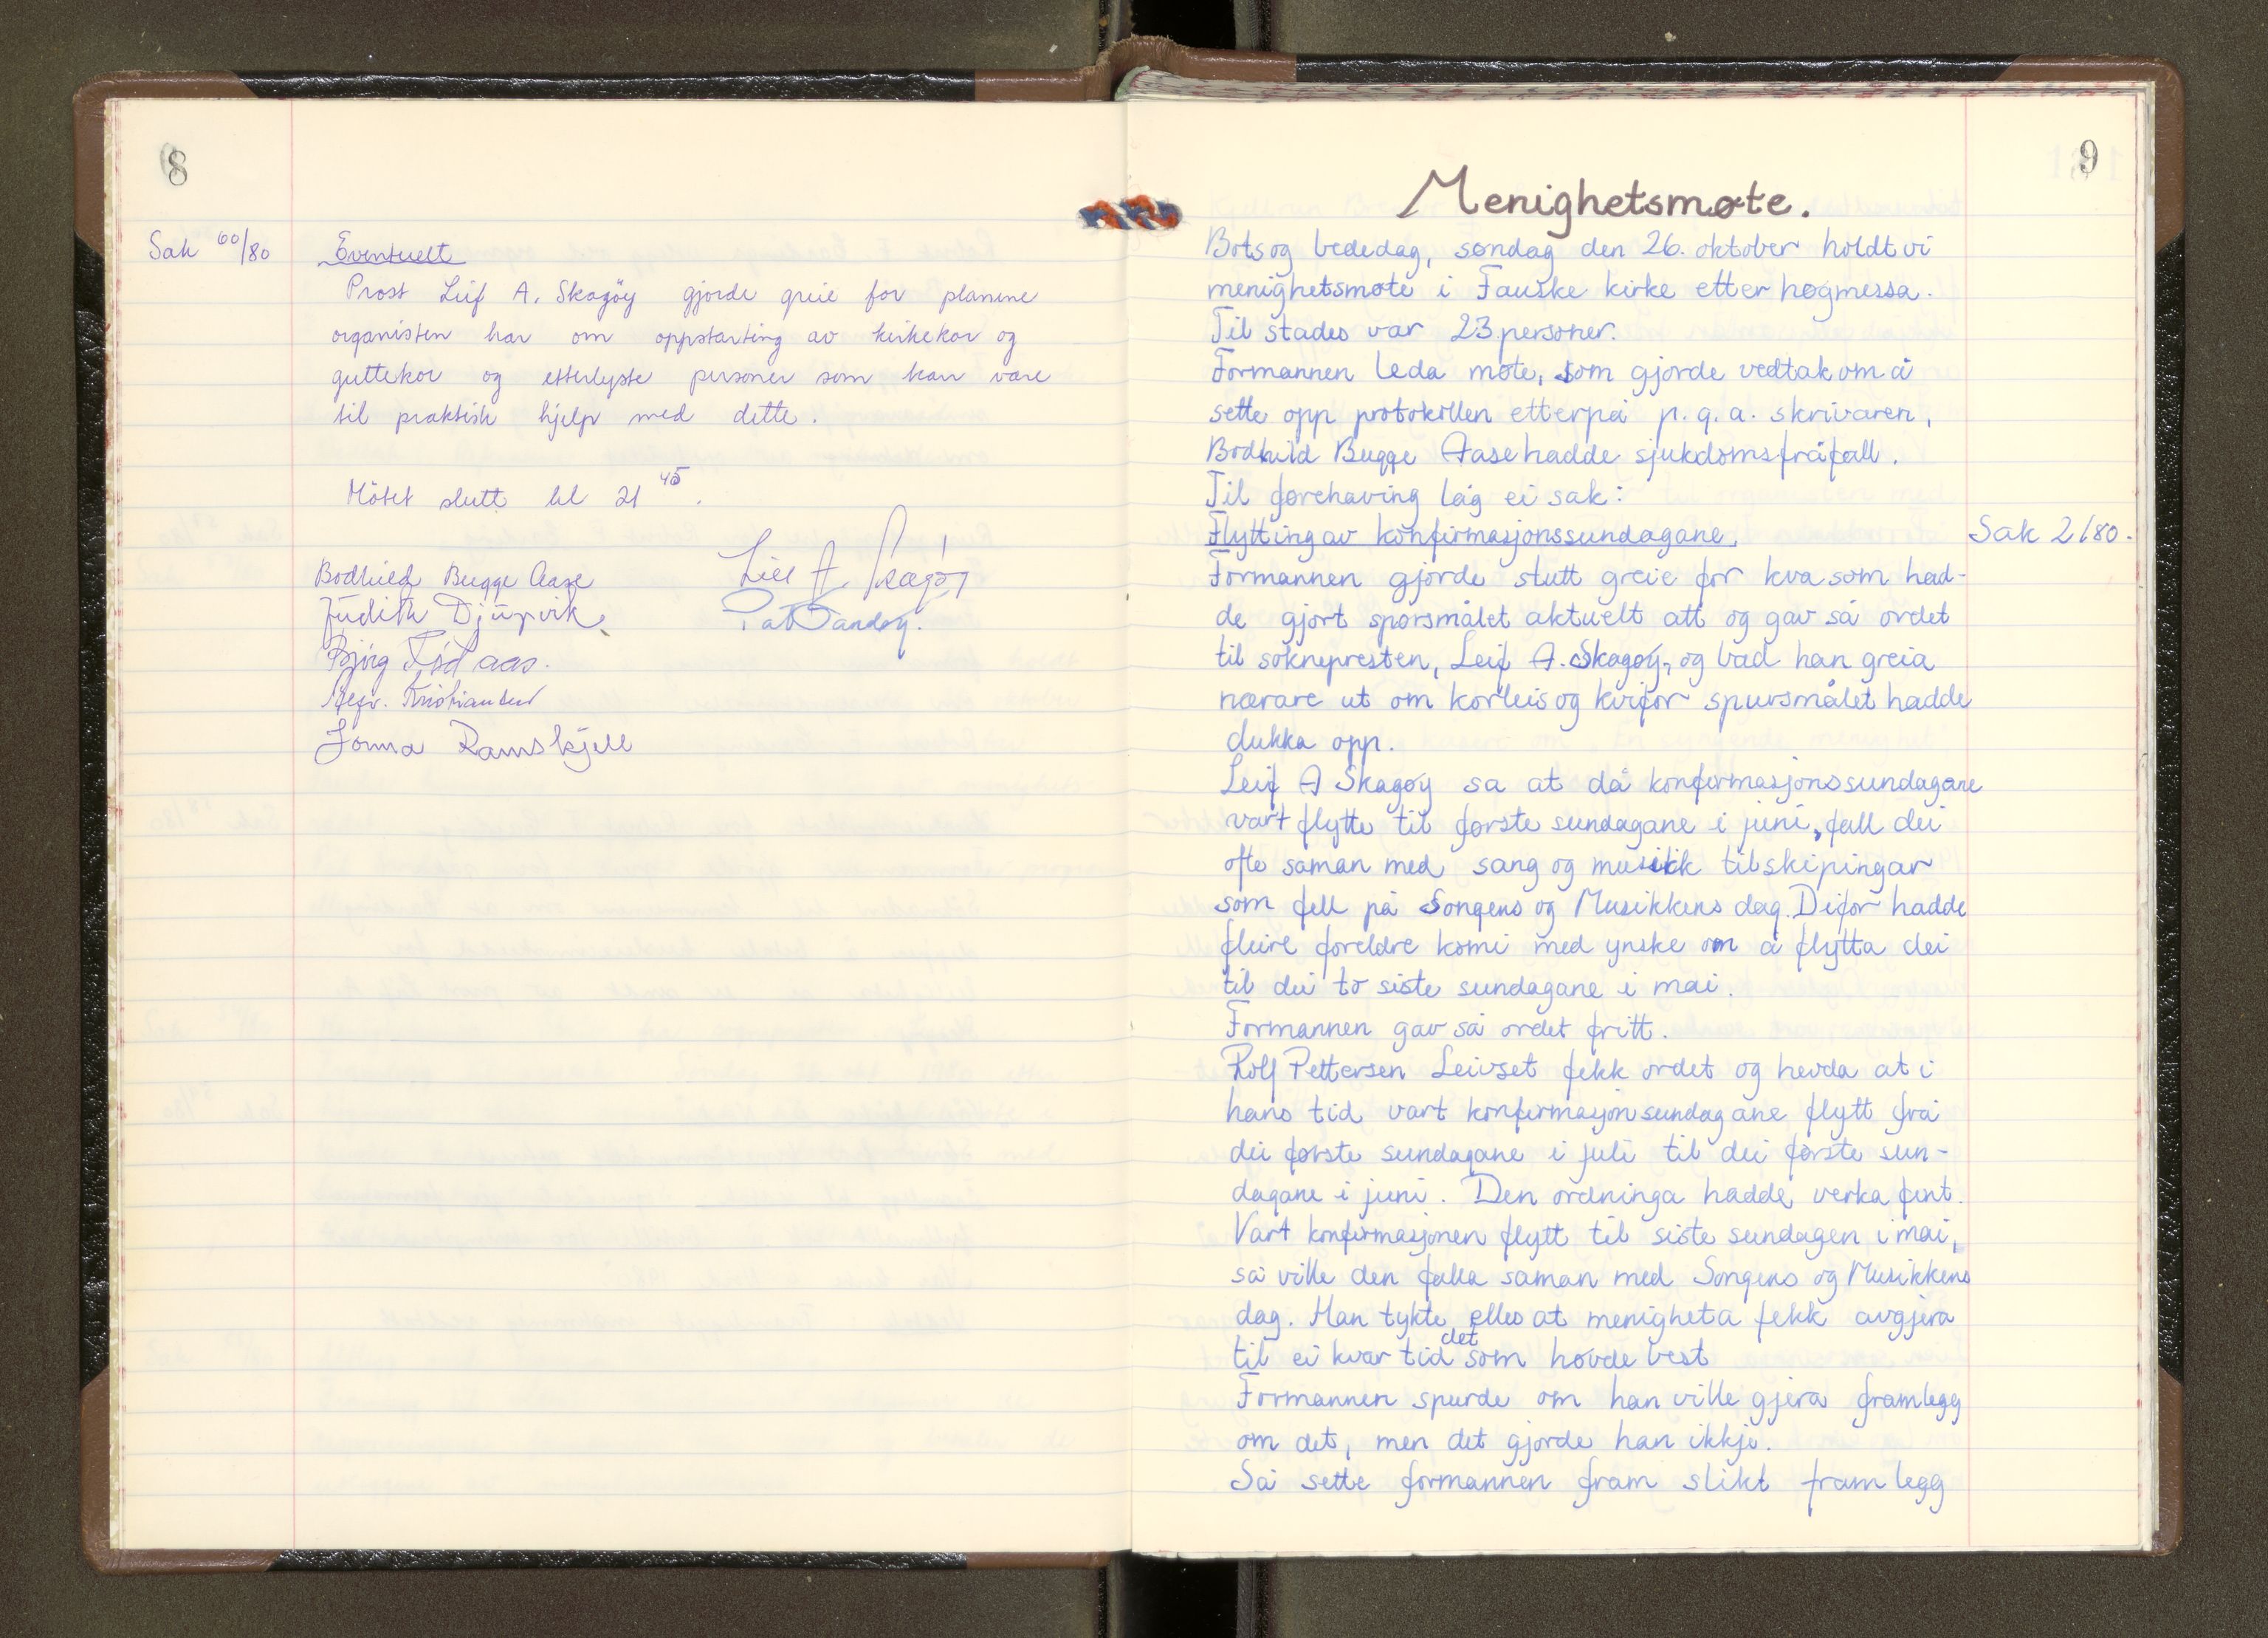 8
Sak 60/80
Eventuelt
Prost Leif A. Skagöy gjorde greie for planene
organisten har om oppstarting av kirkekor og
guttekor og etterlyste personer som kan være
til praktisk hjelp med dette.
Mötet slutt kl 21 45.
Bodhild Bugge Aase
Judith Djupvik
Leif A Skagöy
Bjørg
Kristiansen
Jorma Ramskjell
9
Menighetsmøte.
Bots og bededag, søndag den 26. oktober holdt vi
menighetsmøte i Fauske kirke etter høgmessa.
Til stades var 23 personer.
Formannen leda møte, som gjorde vedtak om å
sette opp protokollen etterpå p.g.a. skrivaren,
Bodhild Bugge Aase hadde sjukdomsfråfall.
Til førehaving låg ei sak:
Flytting av konfirmasjonssundagane.
Sak 2/80.
Formannen gjorde stutt greie for kva som had-
de gjort spørsmålet aktuelt att og gav så ordet
til soknepresten, Leif A. Skagøy, og bad han greia
nærare ut om korleis og kvifor spursmålet hadde
dukka opp.
Leif A Skagøy sa at då konfirmasjonssundagane
vart flytte til første sundagane i juni, fall dei
ofte saman med sang og musikk tilskipingar
som fell på Songens og Musikkens dag. Difor hadde
fleire foreldre komi med ynske om å flytta dei
til dei to siste sundagane i mai.
Formannen gav så ordet fritt.
Rolf Pettersen Leivset fekk ordet og hevda at i
hans tid vart konfirmasjonsundagane flytt frå
dei første sundagane i juli til dei første sun-
dagane i juni. Den ordninga hadde verka fint.
Vart konfirmasjonen flytt til siste sundagen i mai,
så ville den falla saman med Songens og Musikkens
dag. Han tykte elles at menigheta fekk avgjera
til ei kvar tid det som høvde best
Formannen spurde om han ville gjera framlegg
om det, men det gjorde han ikkje.
Så sette formannen fram slikt framlegg